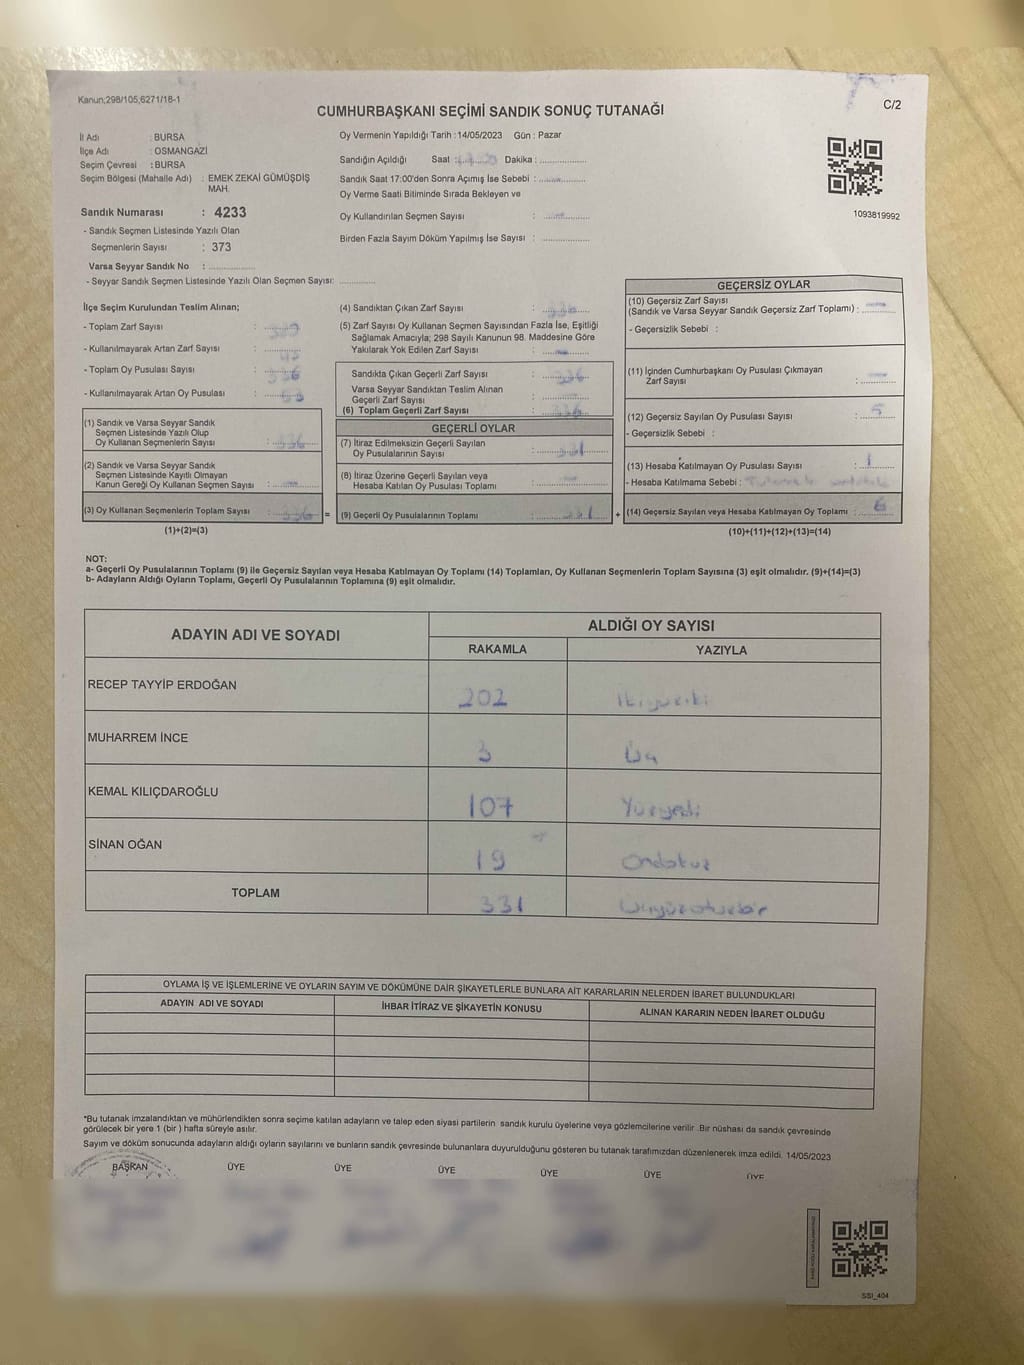 Kanun;298/105,6271/18-1
C/2
CUMHURBAŞKANI SEÇİMİ SANDIK SONUÇ TUTANAĞI
İl Adı : BURSA
İlçe Adı : OSMANGAZİ
Seçim Çevresi : BURSA
Seçim Bölgesi (Mahalle Adı) : EMEK ZEKAİ GÜMÜŞDİŞ
MAH.
Sandık Numarası : 4233
- Sandık Seçmen Listesinde Yazılı Olan
Seçmenlerin Sayısı : 373
Varsa Seyyar Sandık No :
- Seyyar Sandık Seçmen Listesinde Yazılı Olan Seçmen Sayısı:
Oy Vermenin Yapıldığı Tarih : 14/05/2023 Gün : Pazar
Sandığın Açıldığı Saat : Dakika :
Sandık Saat 17:00'den Sonra Açımış İse Sebebi :
Oy Verme Saati Bitiminde Sırada Bekleyen ve
Oy Kullandırılan Seçmen Sayısı :
Birden Fazla Sayım Döküm Yapılmış İse Sayısı :
1093819992
İlçe Seçim Kurulundan Teslim Alınan;
- Toplam Zarf Sayısı :
- Kullanılmayarak Artan Zarf Sayısı :
- Toplam Oy Pusulası Sayısı :
- Kullanılmayarak Artan Oy Pusulası :
(1) Sandık ve Varsa Seyyar Sandık
Seçmen Listesinde Yazılı Olup
Oy Kullanan Seçmenlerin Sayısı : 336
(2) Sandık ve Varsa Seyyar Sandık
Seçmen Listesinde Kayıtlı Olmayan
Kanun Gereği Oy Kullanan Seçmen Sayısı : —
(3) Oy Kullanan Seçmenlerin Toplam Sayısı : 336
(1)+(2)=(3)
(4) Sandıktan Çıkan Zarf Sayısı : 336
(5) Zarf Sayısı Oy Kullanan Seçmen Sayısından Fazla İse, Eşitliği
Sağlamak Amacıyla; 298 Sayılı Kanunun 98. Maddesine Göre
Yakılarak Yok Edilen Zarf Sayısı : —
Sandıkta Çıkan Geçerli Zarf Sayısı : 336
Varsa Seyyar Sandıktan Teslim Alınan
Geçerli Zarf Sayısı : —
(6) Toplam Geçerli Zarf Sayısı : 336
GEÇERLİ OYLAR
(7) İtiraz Edilmeksizin Geçerli Sayılan
Oy Pusulalarının Sayısı : 331
(8) İtiraz Üzerine Geçerli Sayılan veya
Hesaba Katılan Oy Pusulası Toplamı : —
= (9) Geçerli Oy Pusulalarının Toplamı : 331 +
GEÇERSİZ OYLAR
(10) Geçersiz Zarf Sayısı
(Sandık ve Varsa Seyyar Sandık Geçersiz Zarf Toplamı) : —
- Geçersizlik Sebebi :
(11) İçinden Cumhurbaşkanı Oy Pusulası Çıkmayan
Zarf Sayısı : —
(12) Geçersiz Sayılan Oy Pusulası Sayısı : 5
- Geçersizlik Sebebi :
(13) Hesaba Katılmayan Oy Pusulası Sayısı : 1
- Hesaba Katılmama Sebebi :
(14) Geçersiz Sayılan veya Hesaba Katılmayan Oy Toplamı : 6
(10)+(11)+(12)+(13)=(14)
NOT:
a- Geçerli Oy Pusulalarının Toplamı (9) ile Geçersiz Sayılan veya Hesaba Katılmayan Oy Toplamı (14) Toplamları, Oy Kullanan Seçmenlerin Toplam Sayısına (3) eşit olmalıdır. (9)+(14)=(3)
b- Adayların Aldığı Oyların Toplamı, Geçerli Oy Pusulalarının Toplamına (9) eşit olmalıdır.
ADAYIN ADI VE SOYADI
ALDIĞI OY SAYISI
RAKAMLA YAZIYLA
RECEP TAYYİP ERDOĞAN 202 ikiyüziki
MUHARREM İNCE 3 üç
KEMAL KILIÇDAROĞLU 107 Yüzyedi
SİNAN OĞAN 19 ondokuz
TOPLAM 331 üçyüzotuzbir
OYLAMA İŞ VE İŞLEMLERİNE VE OYLARIN SAYIM VE DÖKÜMÜNE DAİR ŞİKAYETLERLE BUNLARA AİT KARARLARIN NELERDEN İBARET BULUNDUKLARI
ADAYIN ADI VE SOYADI İHBAR İTİRAZ VE ŞİKAYETİN KONUSU ALINAN KARARIN NEDEN İBARET OLDUĞU
*Bu tutanak imzalandıktan ve mühürlendikten sonra seçime katılan adayların ve talep eden siyasi partilerin sandık kurulu üyelerine veya gözlemcilerine verilir .Bir nüshası da sandık çevresinde
görülecek bir yere 1 (bir ) hafta süreyle asılır.
Sayım ve döküm sonucunda adayların aldığı oyların sayılarını ve bunların sandık çevresinde bulunanlara duyurulduğunu gösteren bu tutanak tarafımızdan düzenlenerek imza edildi. 14/05/2023
BAŞKAN ÜYE ÜYE ÜYE ÜYE ÜYE ÜYE
SSI_404